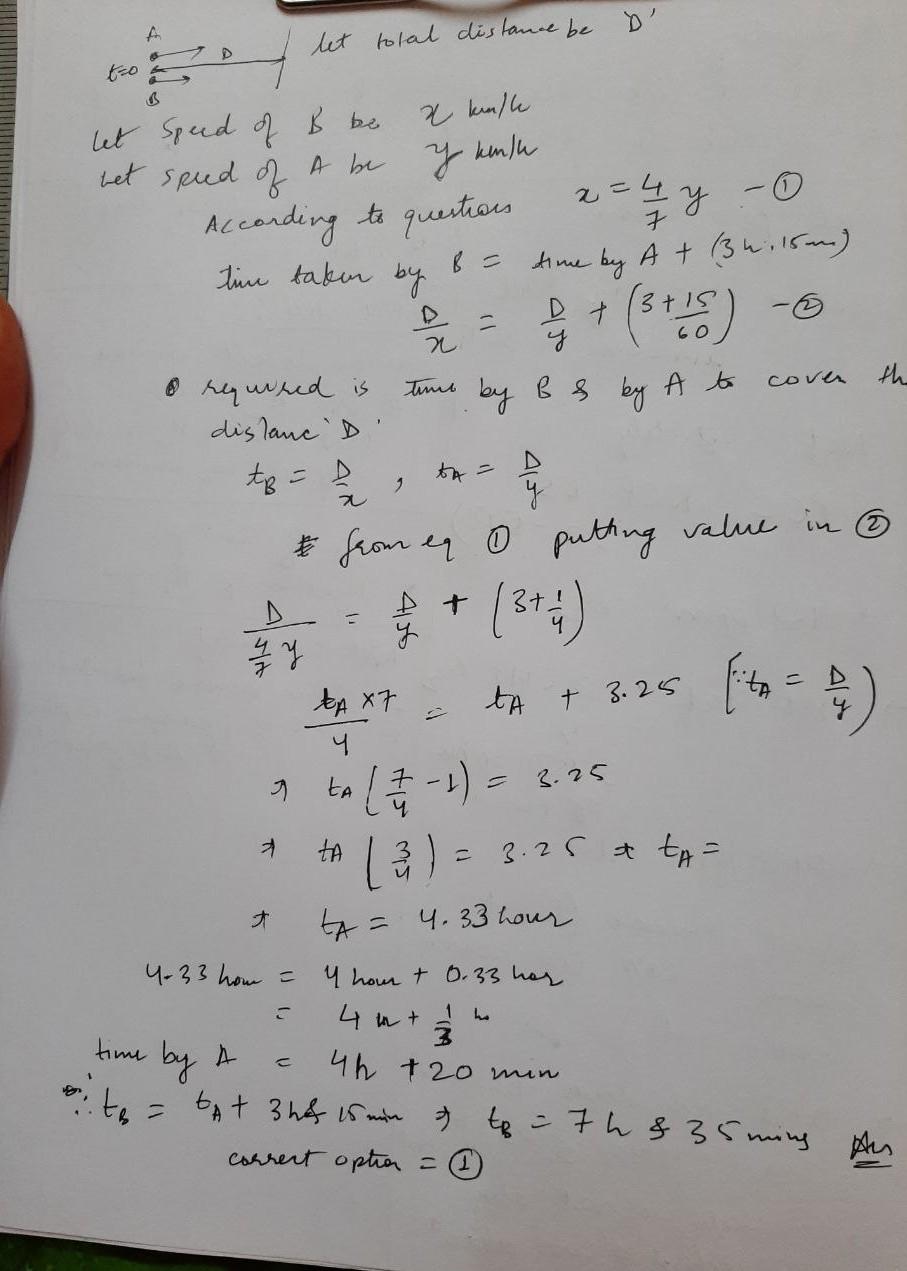 A
D
t=0
B
let total distance be 'D'
let Speed of B be x km/h
Let speed of A be y km/h
According to question x = 4/7 y - ①
time taken by B = time by A + (3h.15m)
D/x = D/y + (3 + 15/60) - ②
required is time by B & by A to cover th
distanc 'D'
tB = D/x , tA = D/y
from eq ① putting value in ②
D/(4/7 y) = D/y + (3 + 1/4)
tA × 7/4 = tA + 3.25 [∵ tA = D/y)
⇒ tA (7/4 - 1) = 3.25
⇒ tA (3/4) = 3.25 ⇒ tA =
⇒ tA = 4.33 hour
4.33 hour = 4 hour + 0.33 hour
= 4 h + 1/3 h
time by A = 4h + 20 min
∴ tB = tA + 3h & 15 min ⇒ tB = 7 h & 35 mins Ans
correct option = ①